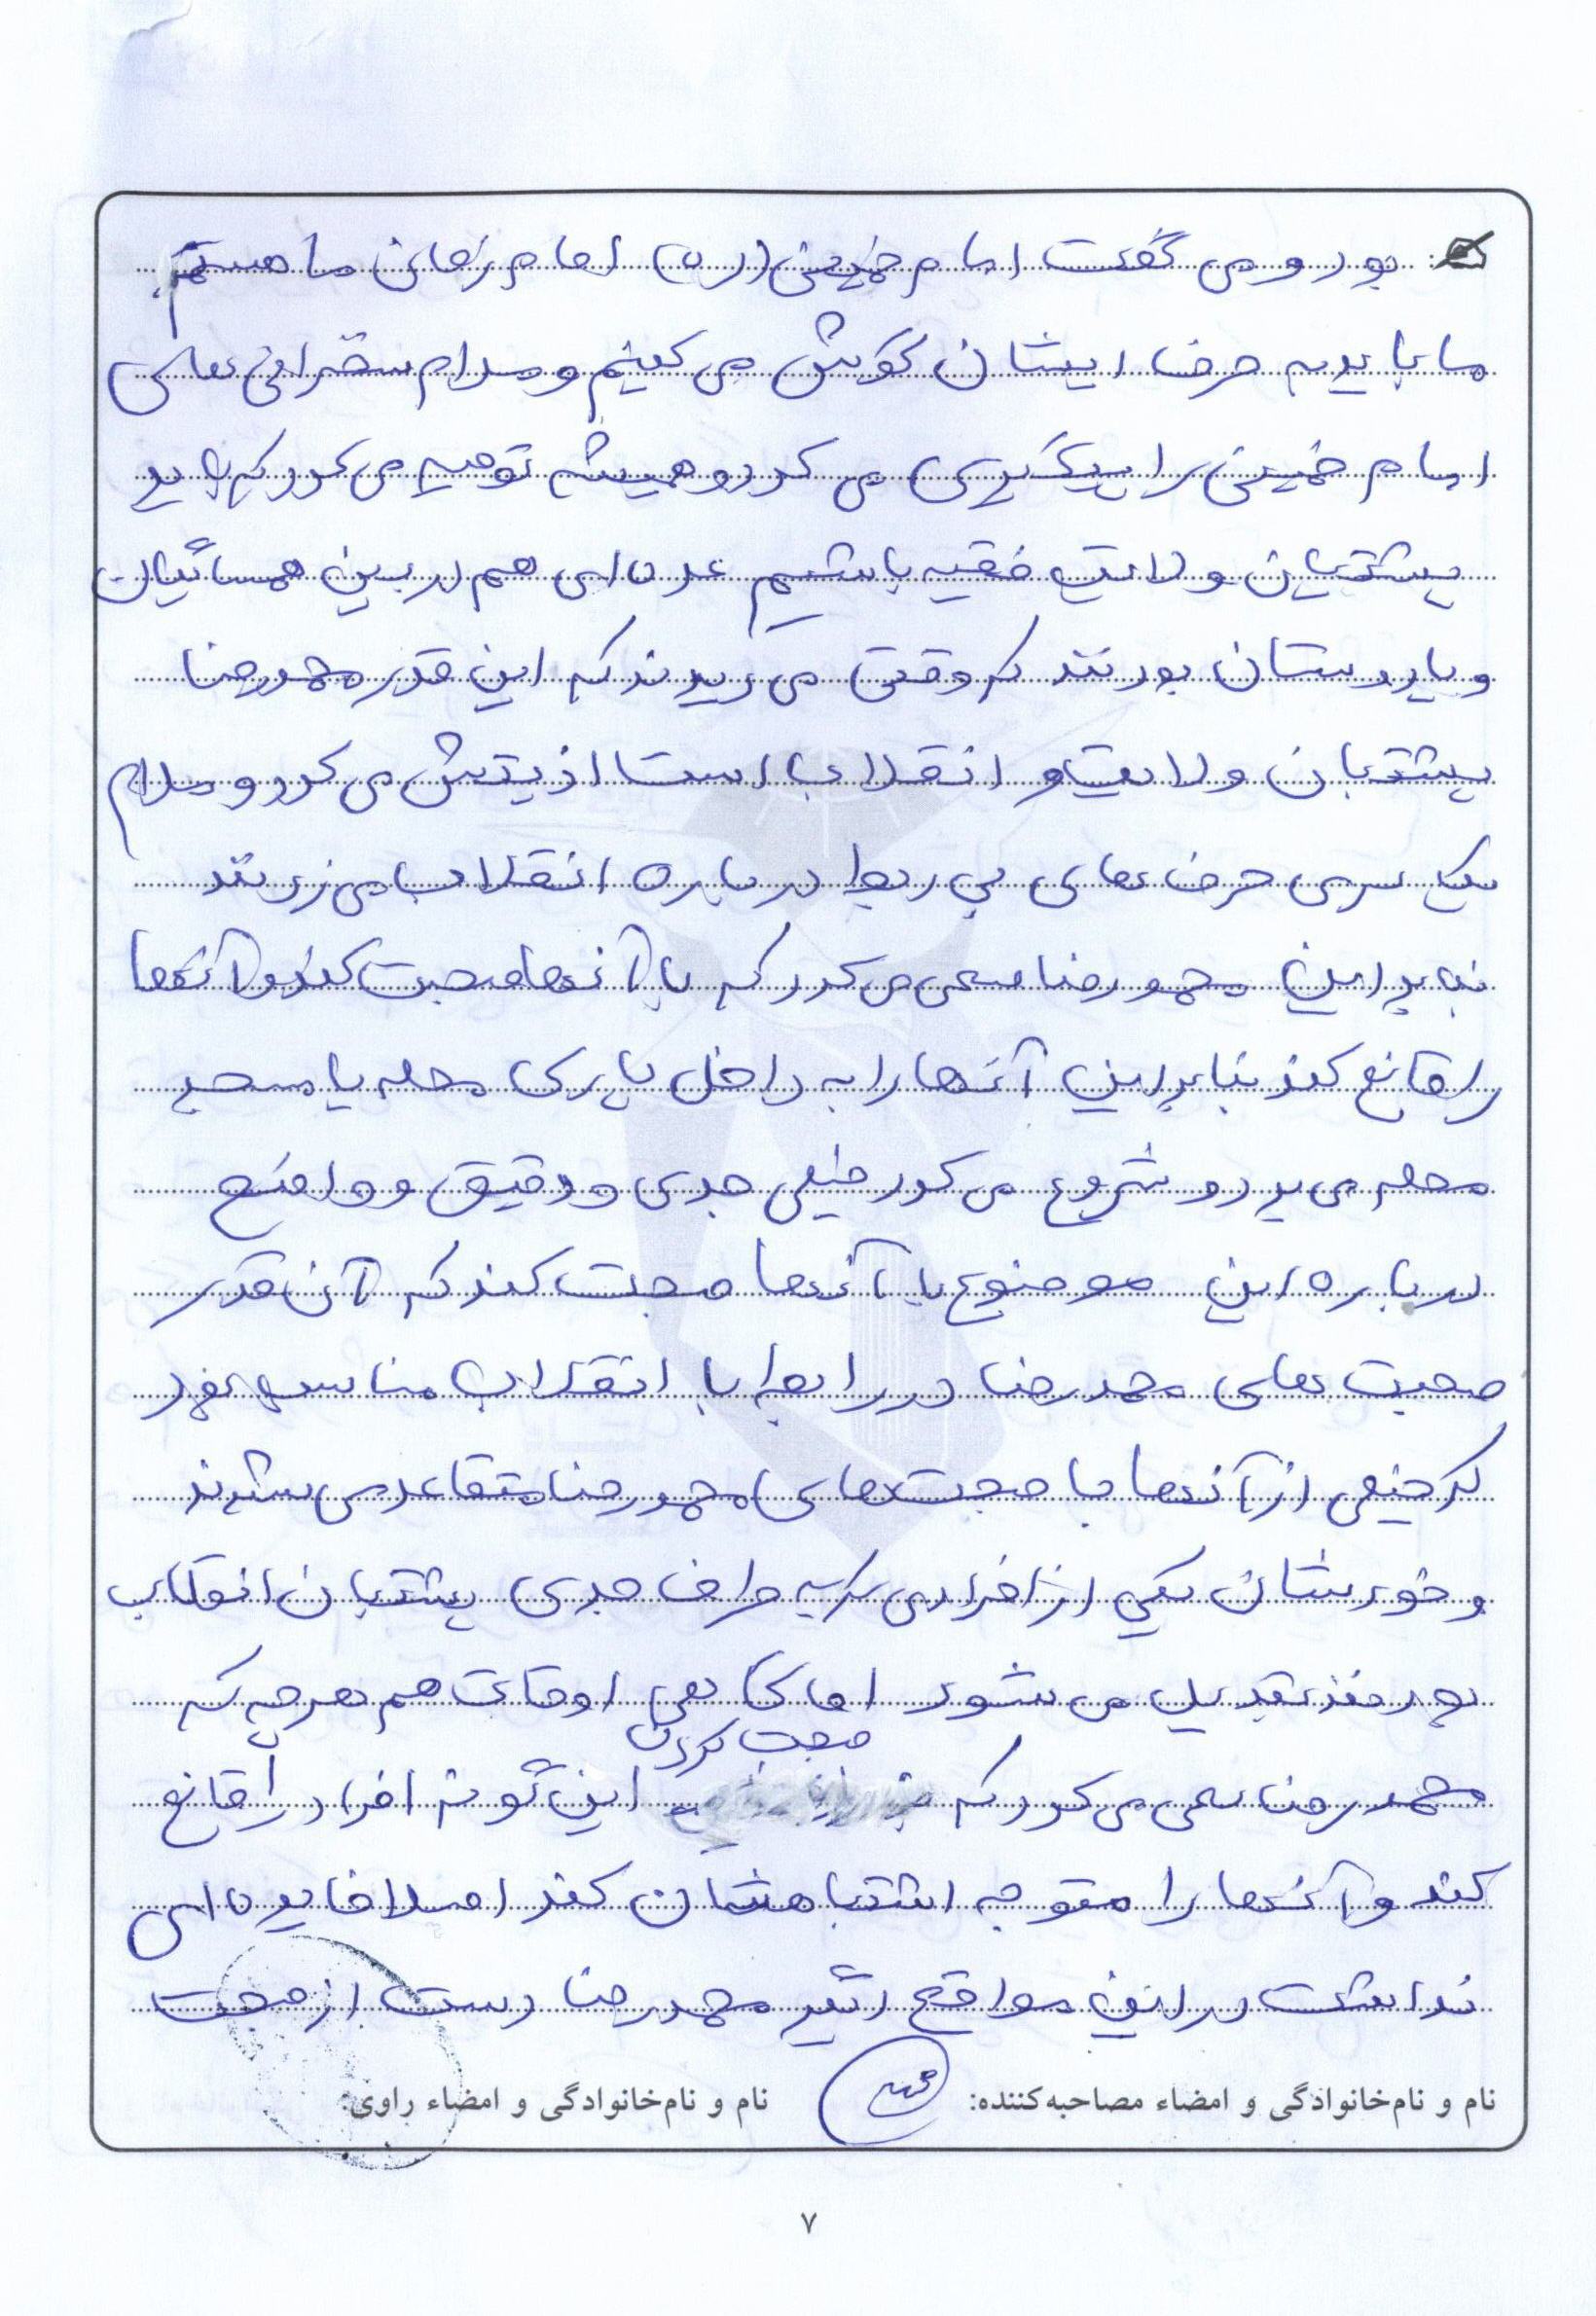 بود و می گفت امام خمینی (ره) امام زمان ما هستند
ما باید به حرف ایشان گوش می کنیم و مدام سخنرانی های
امام خمینی را پیگیری می کرد و همیشه توصیه می کرد که باید
پشتیبان ولایت فقیه باشیم عده ای هم در بین همسائیان
و یا دوستان بودند که وقتی می دیدند که این قدر محمدرضا
پشتبان ولایت و انقلاب است اذیتش می کرد و مدام
یک سری حرف های بی ربط درباره انقلاب می زدند
بنابراین محمدرضا سعی می کرد که با آنها صحبت کند و آنها
را قانع کند بنابراین آنها را به داخل پارک محله یا مسجد
محله می برد و شروع می کرد خیلی جدی و دقیق و واضح
درباره این موضوع با آنها صحبت کند که آن قدر
صحبت های محمدرضا در رابطه با انقلاب مناسب بود
که خیلی از آنها با صحبت های محمدرضا متقاعد می شدند
و خودشان یکی از افرادی که به طرف جدی پشتبان انقلاب
بودند تبدیل می شود اما گاهی اوقات هم هر چه که
محمدرضا سعی می کرد که صحبت کردن این گونه افراد را قانع
کند و آنها را متوجه اشتباهشان کند اصلا فایده ای
نداشت در این مواقع دیگر محمدرضا دست از صحبت
نام و نام‌خانوادگی و امضاء مصاحبه‌کننده:
نام و نام‌خانوادگی و امضاء راوی:
۷